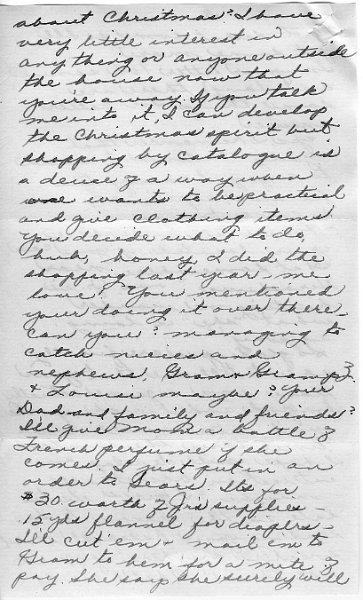 about Christmas? I have
very little interest in
anything or anyone outside
the house now that
you're away. If you talk
me into it, I can develop
the Christmas spirit but
shopping by catalogue is
a deuce of a way when
one wants to be practical
and give clothing items.
You decide what to do,
huh, honey, I did the
shopping last year - me
love. You mentioned
your doing it over there -
can you? managing to
catch nieces and
nephews, Gram & Gramp?
& Louise maybe? Your
Dad and family and friends?
I'll give Mom a bottle of
French perfume if she
comes. I just put in an
order to Sears. It's for
$30 worth of Jr's supplies -
15 yds flannel for diapers -
I'll cut 'em & mail 'em to
Gram to hem for a mite of
pay. She says she surely will